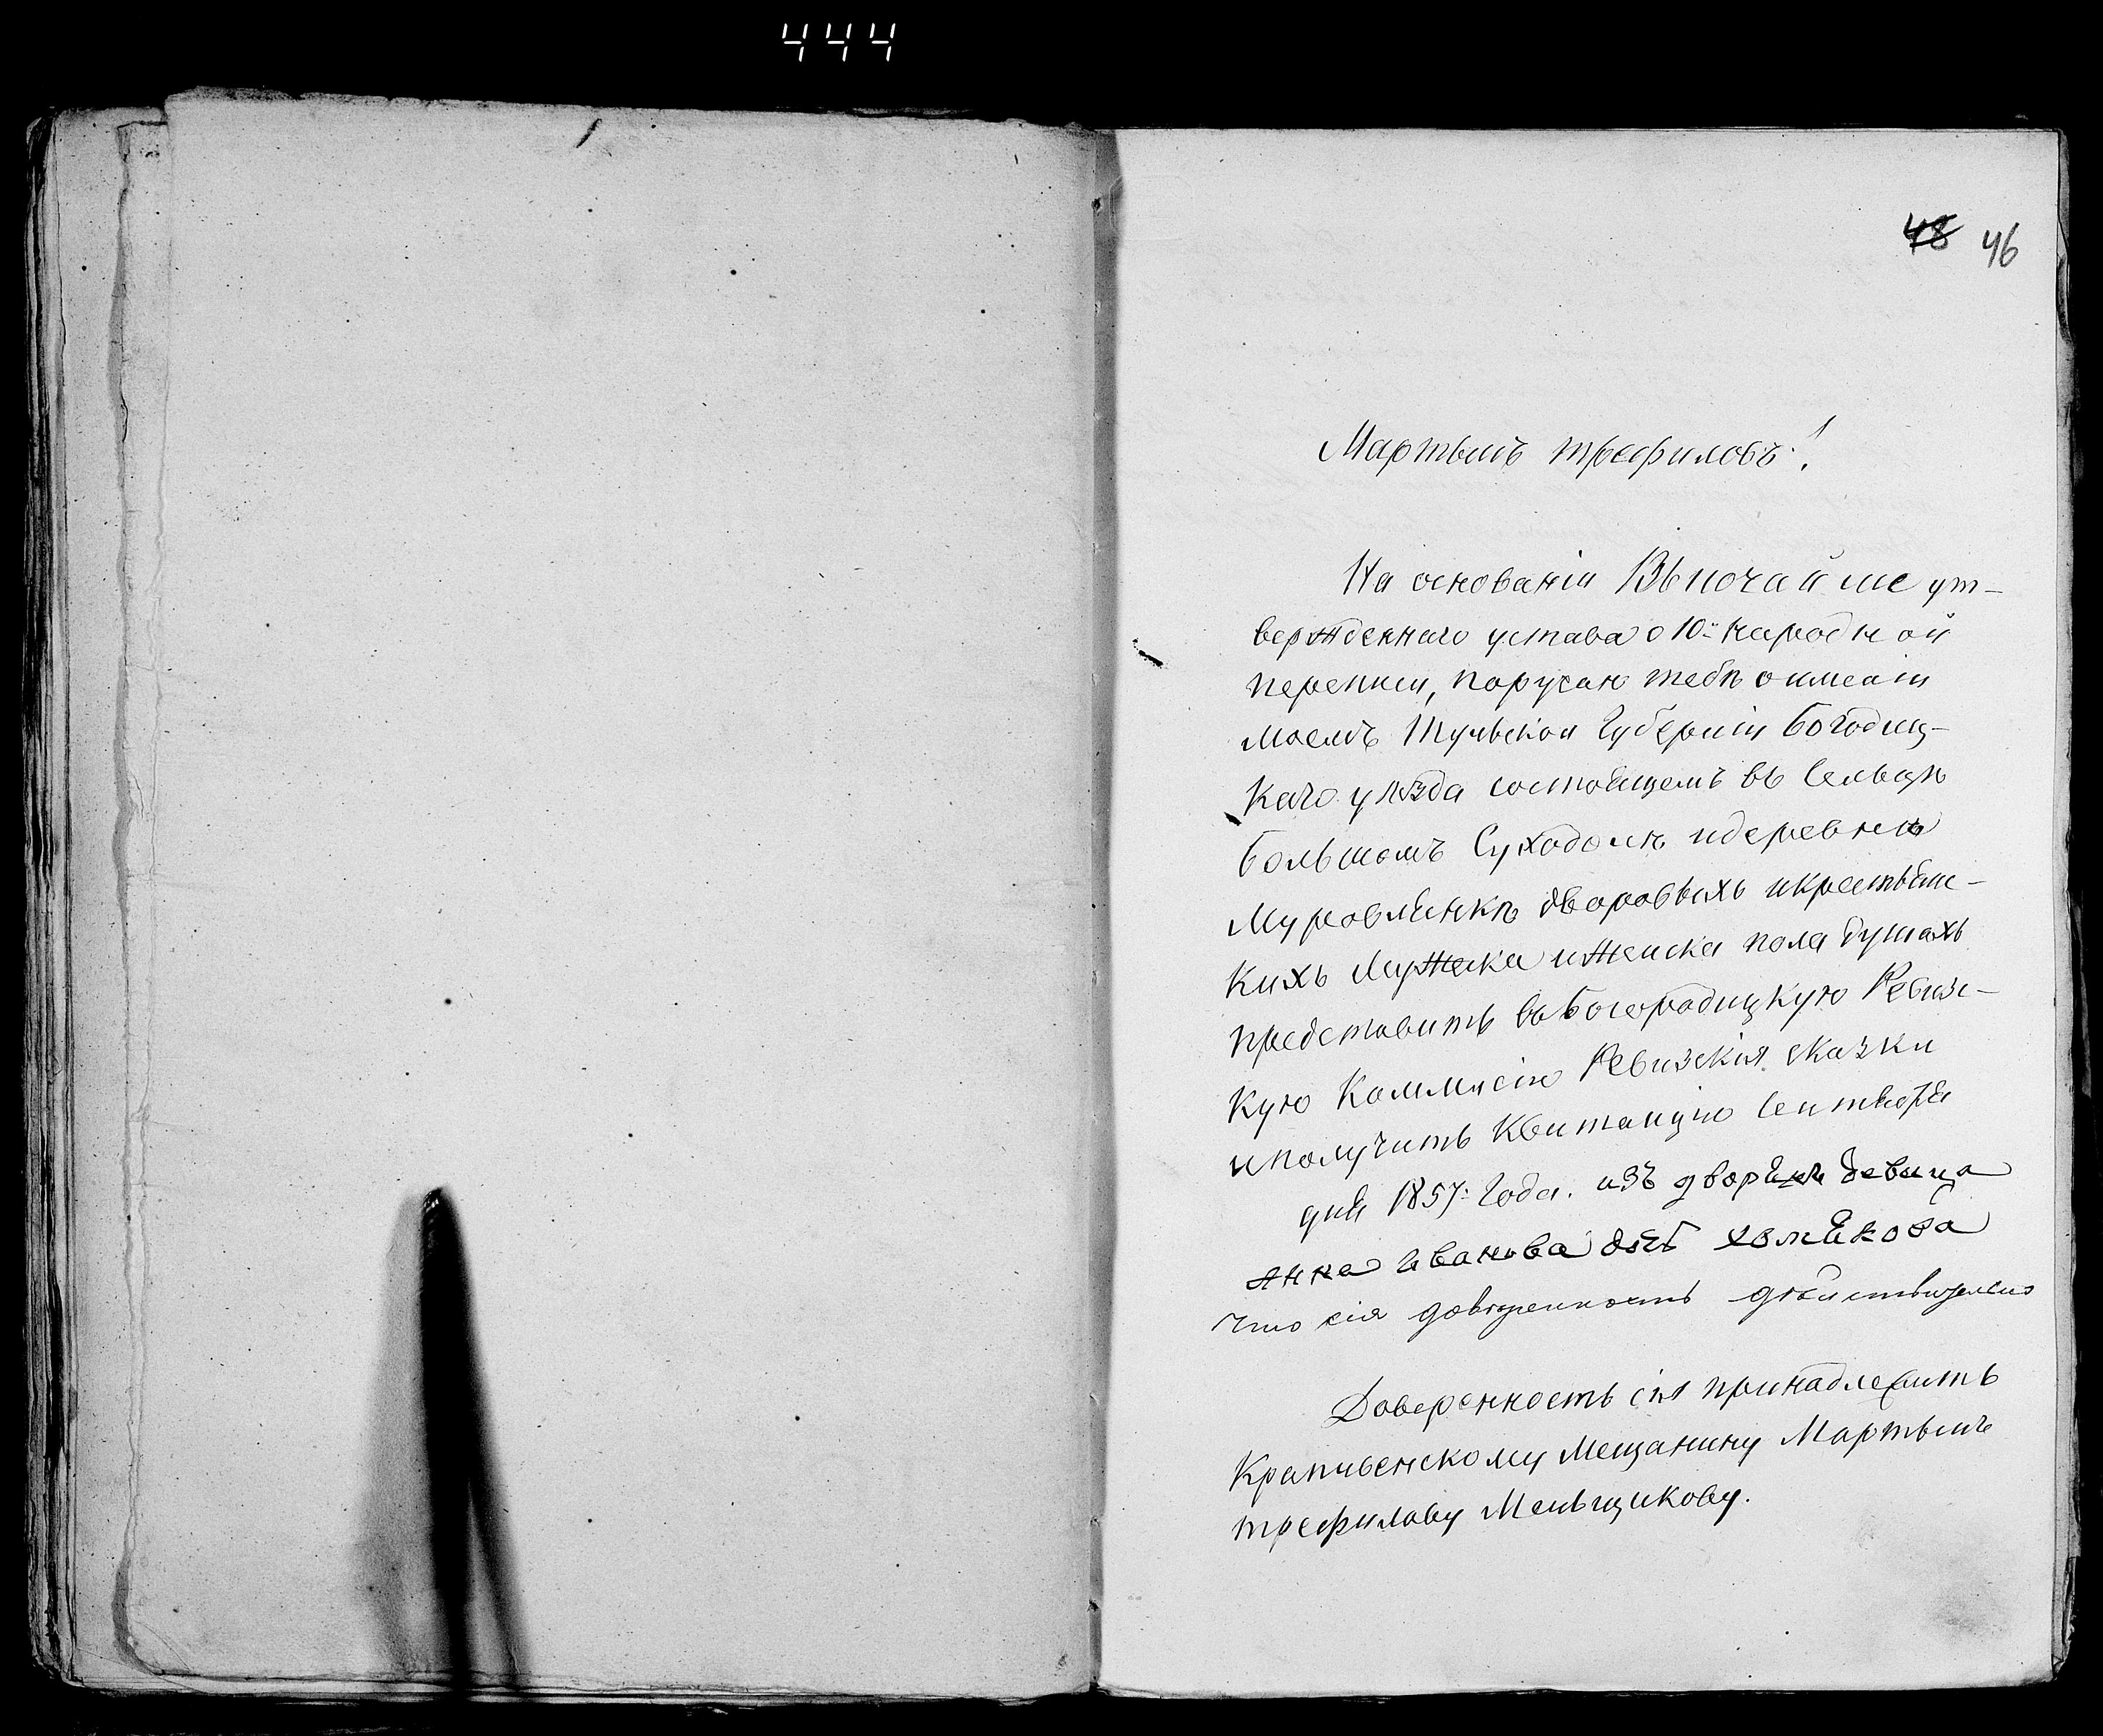 444
48 46
Мартынъ трефиловъ!
На основаніи Высочайше ут-
вержденнаго устава о 10й народной
переписи, поручаю тебѣ о имѣніи
моемъ Тульской Губерніи Богодиц-
каго уѣзда состоящемъ въ сельцѣ
большомъ Суходолѣ идеревнѣ
Муровлянкѣ дворовыхъ икрестьянс-
кихъ Мужска иженска пола душахъ
представить въбогородицкую Ревизс-
кую Коммисію Ревизскія сказки
иполучить Квитанцію Сентября
дня 1857: Года. изъ дворянъ девица
Анна Иванова дочь хомякова
что сія довѣренность дѣйствительно
Доверенность сія принадлежитъ
Крапивенскому мещанину Мартынъ
трефилову Меньщикову.